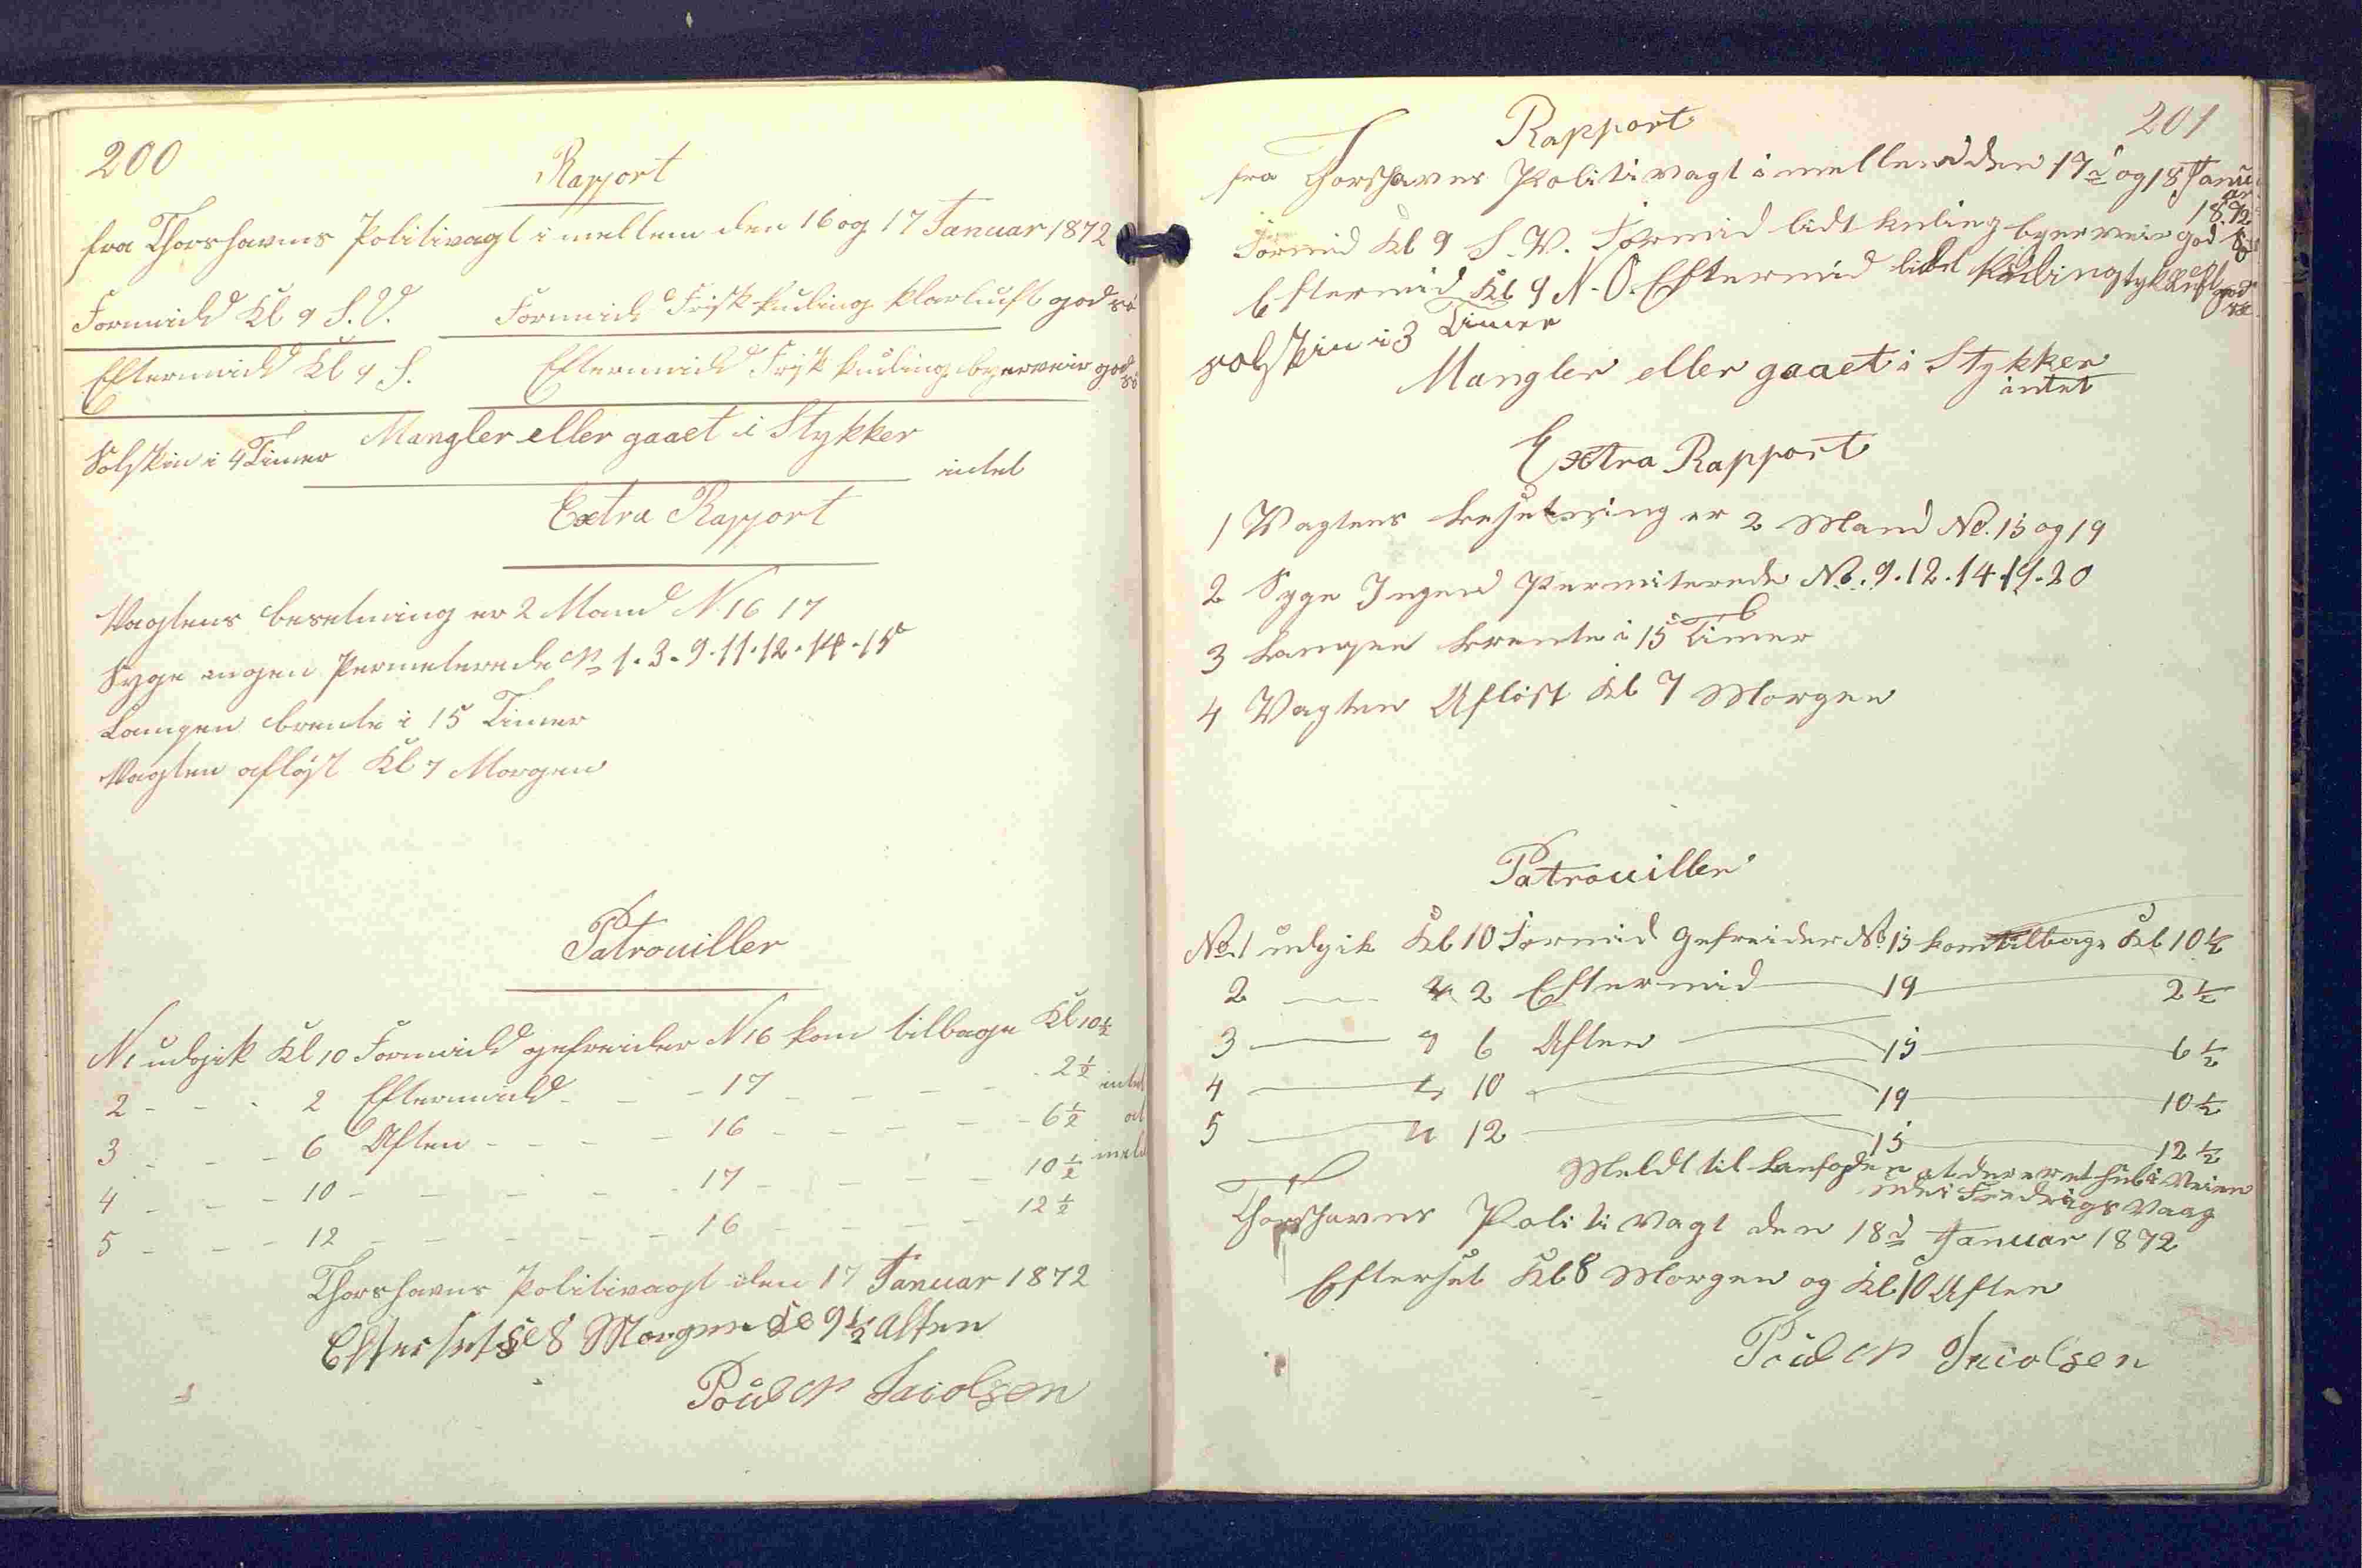 200
Rapport
fra Thorshavns Politivagt i mellem den 16 og 17 Januar 1872
Formidd Kl 9 S.V. Formidd Frisk kuling klarluft god sö
Eftermidd Kl 4 S. Eftermidd Frisk kuling byerveir god sö
Solskin i 4 Timer Mangler eller gaaet i Stykker
intet
Extra Rapport
Vagtens besetning er 2 Mand N 16 17
Syge ingen Permeterede N 1 . 3 . 9 . 11 . 12 . 14 . 15
Lampen brente i 15 Timer
Vagten afløst Kl 7 Morgen
Patrouiller
N 1 udgik Kl 10 Formidd gefreider N 16 kom tilbage Kl 10 ½
2 - - - 2 Eftermidd - - - 17 - - - - 2 ½ intet
3 - - - 6 Aften - - - - 16 - - - - - 6 ½ at
4 - - - 10 - - - - - 17 - - - - 10 ½ melde
5 - - - 12 - - - - - 16 - - - - 12 ½
Thorshavns Politivagt den 17 Januar 1872
Efterset Kl 8 Morgen Kl 9 ½ Aften
Poul N Jacobsen
201
Rapport
fra Thorshavns Politivagt i mellem den 17d og 18 Januar
1872
Formid Kl 9 S.V. Formid lidt kuling byerveir god Sö
Eftermid Kl 4 N.O. Eftermid lidt kuling tyk luft god sö
solskin i 3 Timer
Mangler eller gaaet i Stykker
intet
Extra Rapport
1 Vagtens besetning er 2 Mand No. 15 og 19
2 Syge Ingen Permiterede No. 9 . 12 . 14 . 19 . 20
3 Lampen brente i 15 Timer
4 Vagten Afløst Kl 7 Morgen
Patrouiller
No. 1 udgik Kl 10 Formid Gefreider No 15 kom tilbage Kl 10 ½
2 2 Eftermid 19 2 ½
3 6 Aften 15 6 ½
4 10 19 10 ½
5 12 15 12 ½
Meldt til at der er et hul i Veien
inde i Fredrigs Vaag
Thorshavns Politivagt den 18d Januar 1872
Efterset Kl 8 Morgen og Kl 10 Aften
Poul N Jacobsen